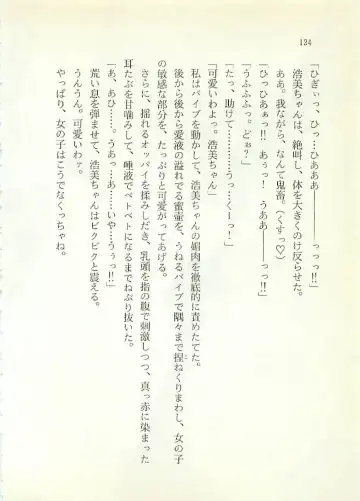 124
「ひぎぃっ、ひっ…ひあああ　　　　っっっ!!」
浩美ちゃんは、絶叫し、体を大きくのけ反らせた。
ああ。我ながら、なんて鬼畜。（くすっ♡）
「ひっひあぁっ!!　あぅっ！　うああ――っっ!!」
「うふふふっ。どぉ？」
「たっ、助けて…………うっ…くーっ！」
「可愛いわよ。浩美ちゃん」
私はバイブを動かして、浩美ちゃんの媚肉を徹底的に責めたてた。
後から後から愛液の溢れでる蜜壺を、うねるバイブで隅々まで捏ねくりまわし、女の子
の敏感な部分を、たっぷりと可愛がってあげる。
さらに、揺れるオッパイを揉みしだき、乳頭を指の腹で刺激しつつ、真っ赤に染まった
耳たぶを甘噛みして、唾液でベトベトになるまでねぶり抜いた。
「あ、あひ……。うあっ…あ……いや…うぅっ!!」
荒い息を弾ませて、浩美ちゃんはビクビクと震える。
うんうん。可愛いわァ。
やっぱり、女の子はこうでなくっちゃね。